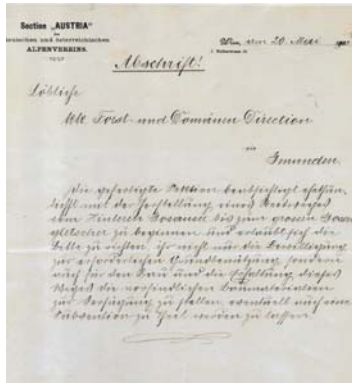 Section „AUSTRIA"
des
deutschen und österreichischen
ALPENVEREINS.
Wien, am 20. März
I. Wallnerstrasse
Abschrift!
Löbliche
kk. Forst- und Domänen Direction
in
Gmunden.
Die gefertigte Sektion beabsichtigt
mit der Herstellung eines Reitweges
vom Hinteren Gosausee bis zum grossen Gosau-
gletscher zu beginnen und erlaubt sich die
Bitte zu richten, ihr nicht nur die Bewilligung
zur erforderlichen Grundbenützung, sondern
auch für den Bau und die Erhaltung dieses
Weges die vorfindlichen Baumaterialien
zur Verfügung zu stellen, eventuell auch eine
Subvention zu Theil werden zu lassen.